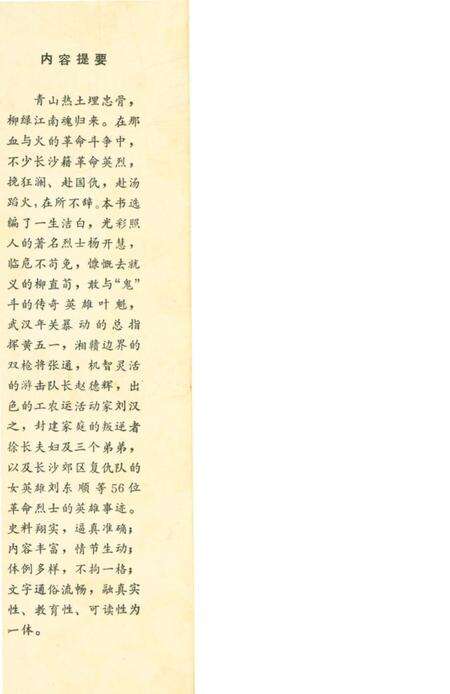 内容提要
青山热土埋忠骨，
柳绿江南魂归来。在那
血与火的革命斗争中，
不少长沙籍革命英烈，
挽狂澜、赴国仇，赴汤
蹈火，在所不辞。本书选
编了一生洁白，光彩照
人的著名烈士杨开慧，
临危不苟免，慷慨去就
义的柳直荀，敢与“鬼”
斗的传奇英雄叶魁，
武汉年关暴动的总指
挥黄五一，湘赣边界的
双枪将张通，机智灵活
的游击队长赵德辉，出
色的工农运活动家刘汉
之，封建家庭的叛逆者
徐长夫妇及三个弟弟，
以及长沙郊区复仇队的
女英雄刘东顺等56位
革命烈士的英雄事迹。
史料翔实，逼真准确；
内容丰富，情节生动；
体例多样，不拘一格；
文字通俗流畅，融真实
性、教育性、可读性为
一体。